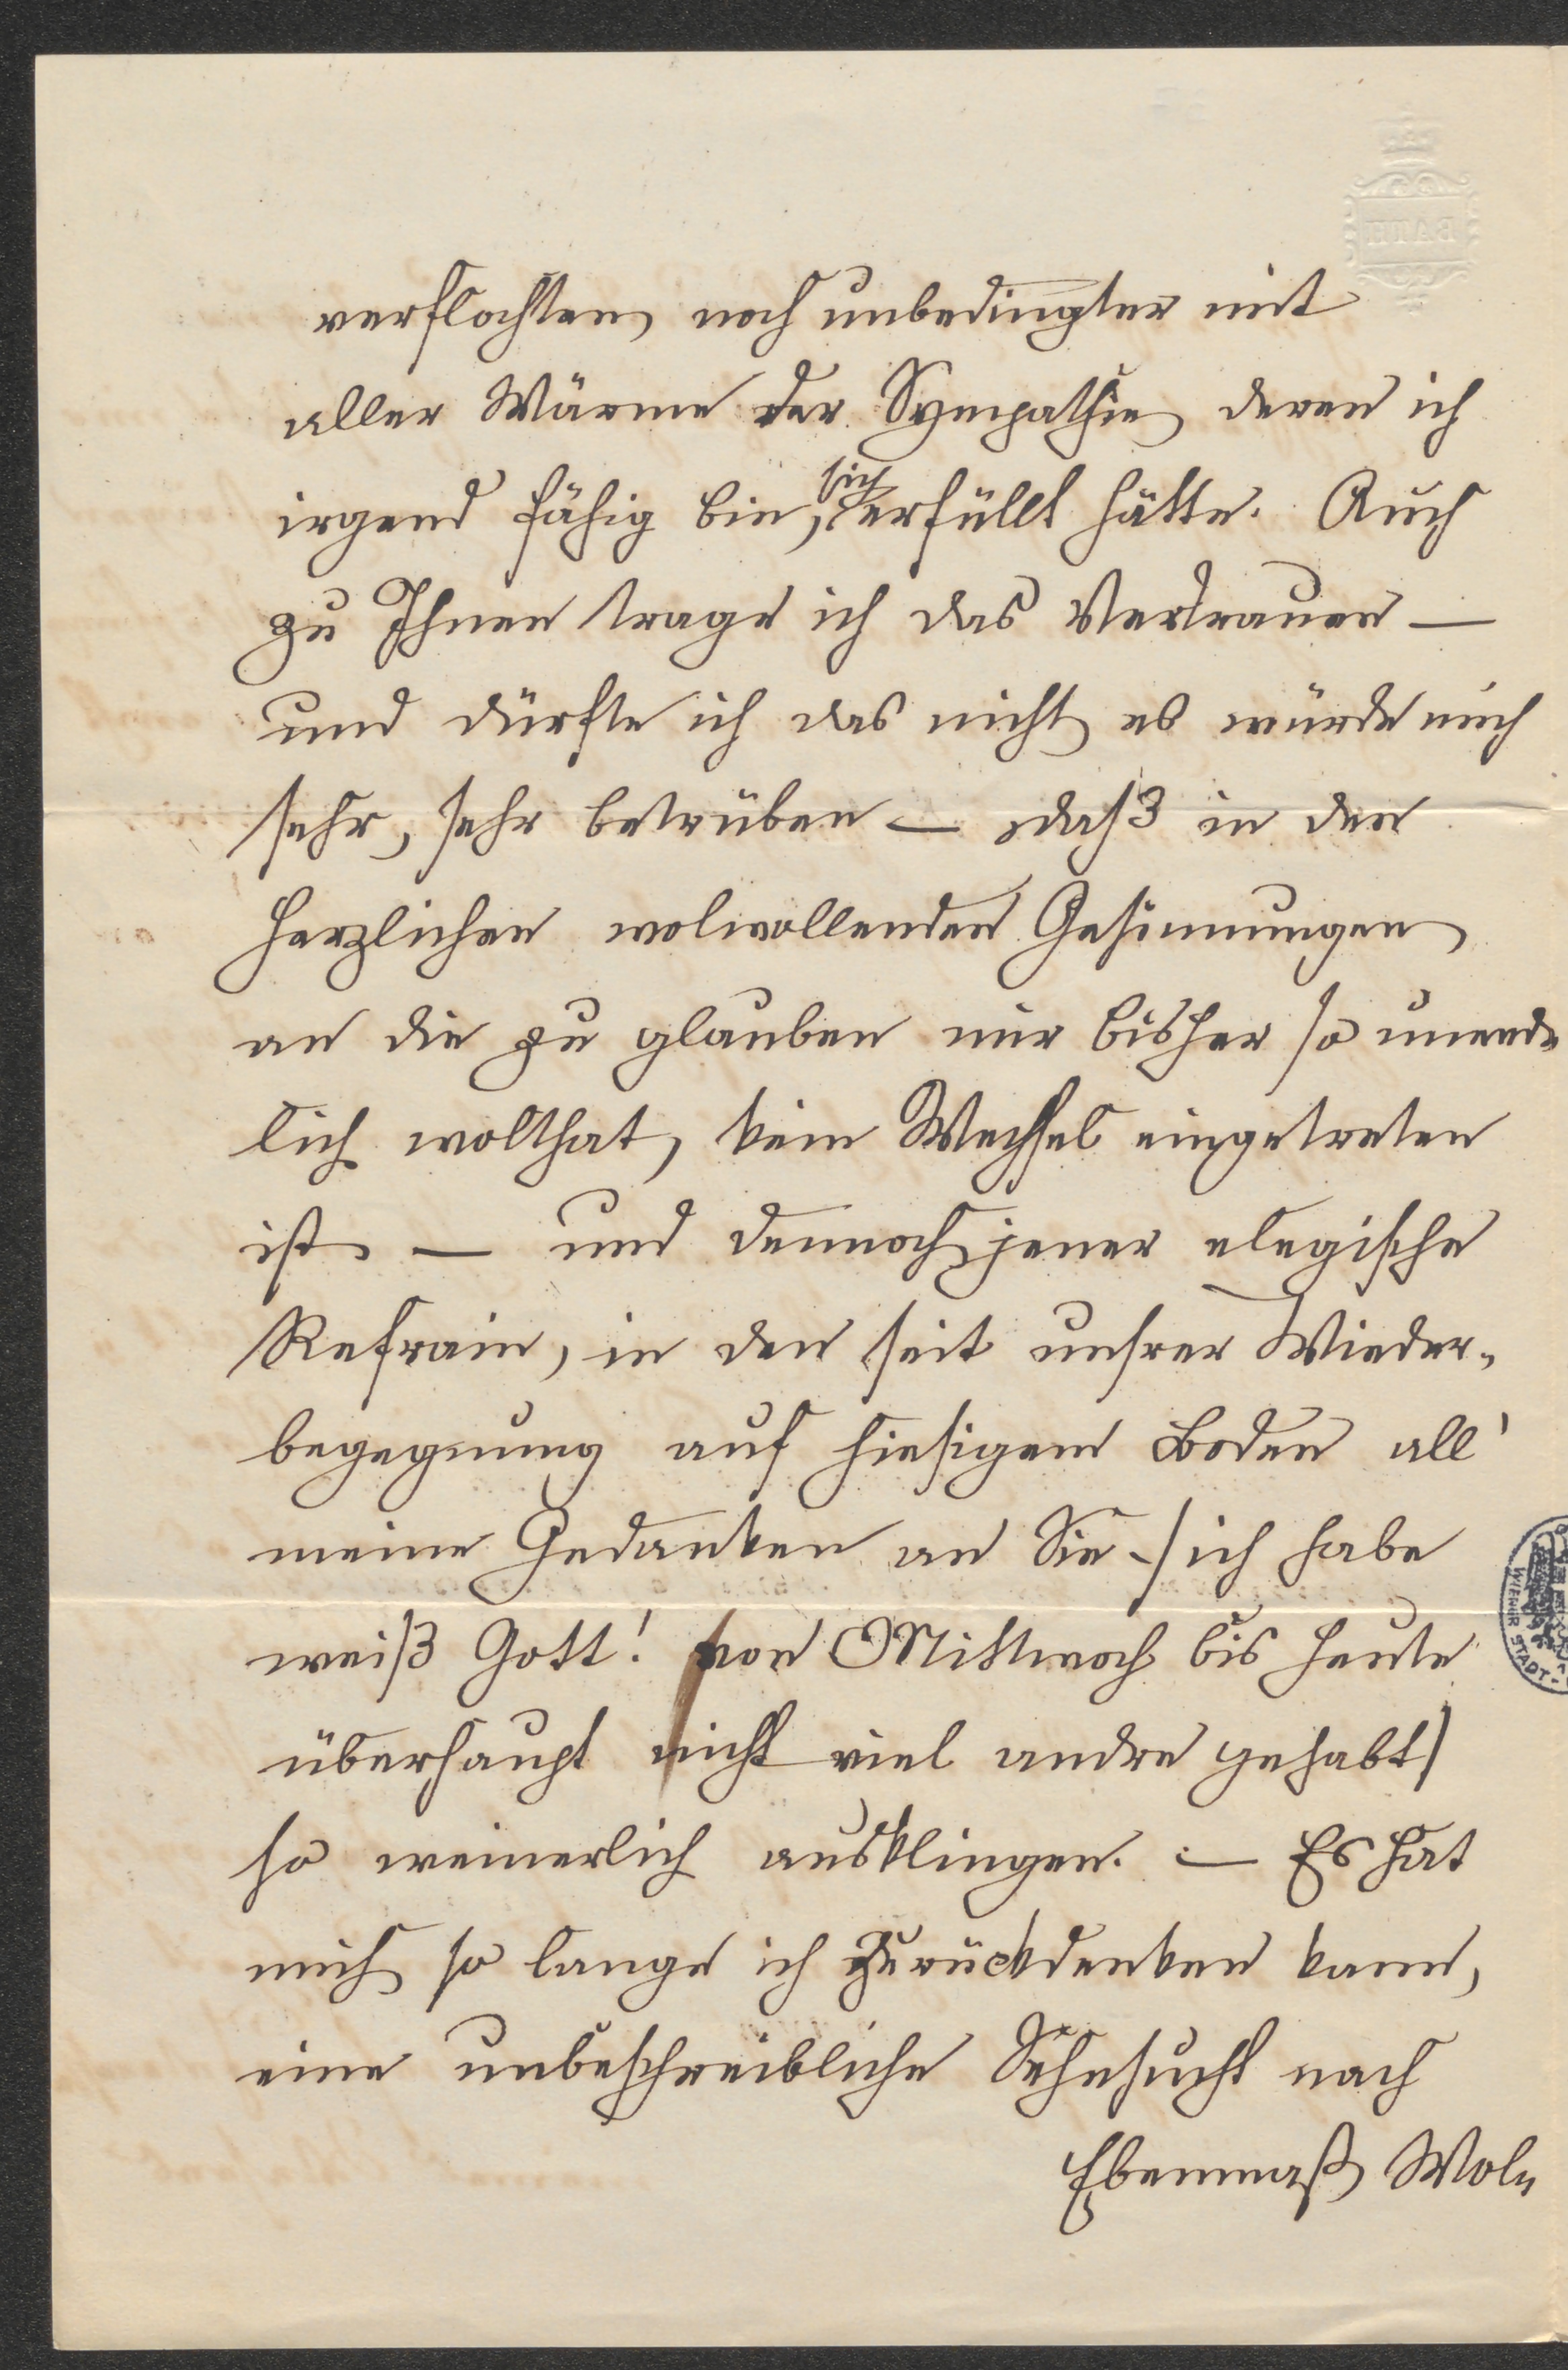 BATH
verflochten, noch unbedingter mit
aller Wärme der Sympathie, deren ich
irgend fähig bin, sich erfüllt hätte. Auch
zu Ihnen trage ich das Vertrauen —
und dürfte ich das nicht, es würde mich
sehr, sehr betrüben — daß in den
herzlichen wolwollenden Gesinnungen,
an die zu glauben mir bisher so unend-
lich wolthat, kein Wechsel eingetreten
ist. — und dennoch jener elegische
Refrain, in den seit unsrer Wieder-
begegnung auf hiesigem Boden all'
meine Gedanken an Sie /ich habe
weiß Gott! von Mittwoch bis heute
überhaupt nicht viel andre gehabt/
so weinerlich ausklingen. — Es hat
mich so lange ich zurückdenken kann,
eine unbeschreibliche Sehnsucht nach
Ebenmaß, Wol-
WIENER STADT-